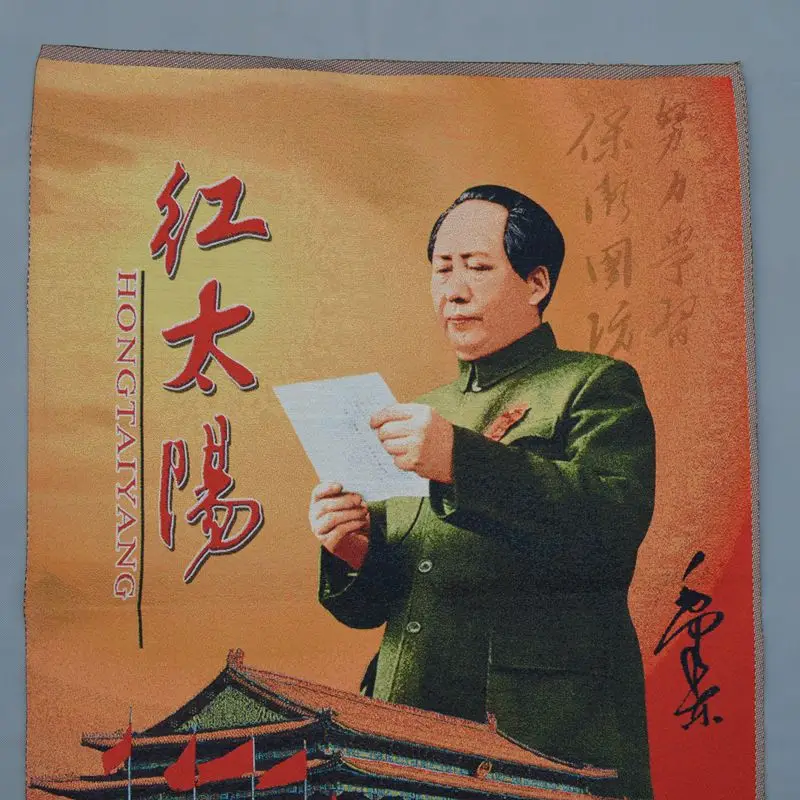 红太陽
HONGTAIYANG
努力学習
保衛国防
毛泽东